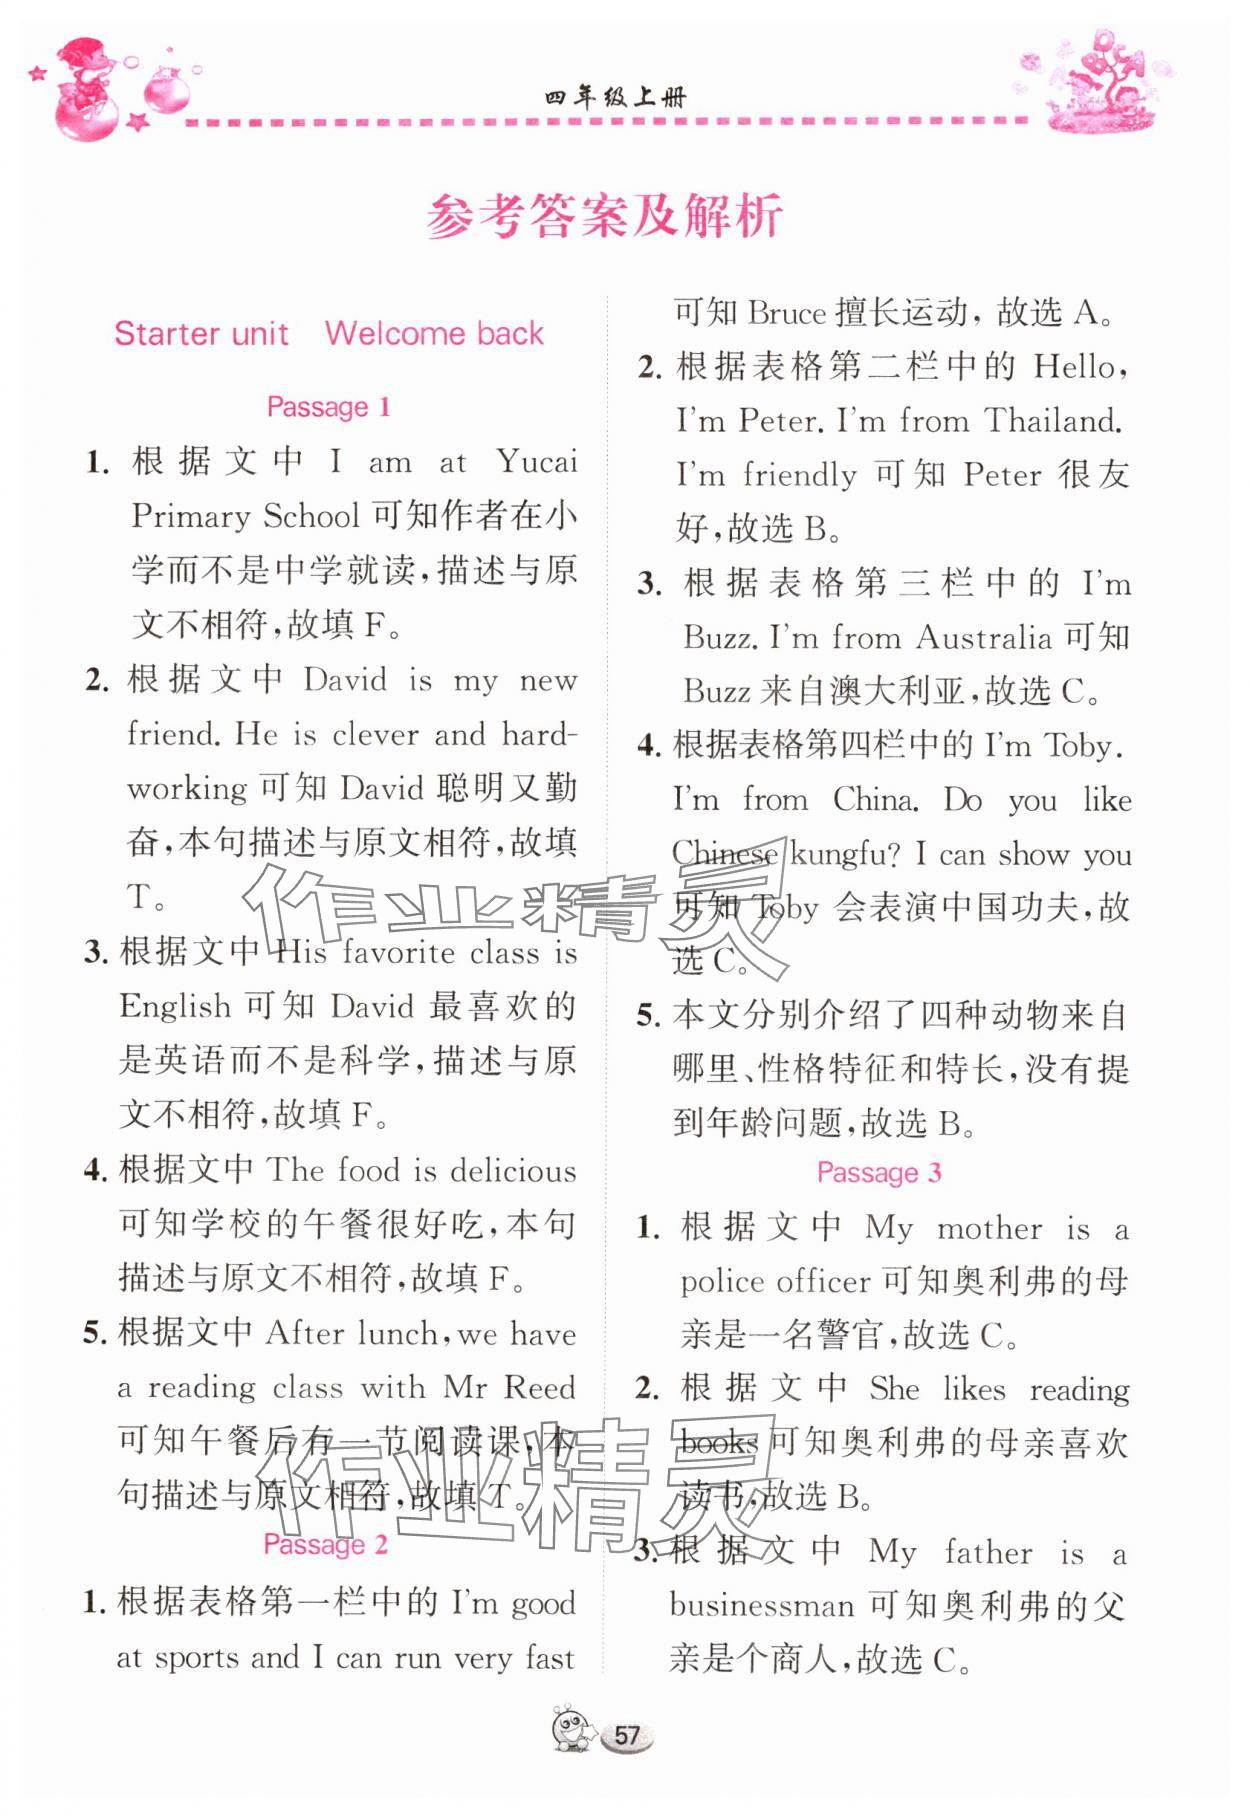 四年级上册
参考答案及解析
Starter unit Welcome back
Passage 1
1. 根据文中 I am at Yucai
Primary School 可知作者在小
学而不是中学就读,描述与原
文不相符,故填 F。
2. 根据文中 David is my new
friend. He is clever and hard-
working 可知 David 聪明又勤
奋,本句描述与原文相符,故填
T。
3. 根据文中 His favorite class is
English 可知 David 最喜欢的
是英语而不是科学,描述与原
文不相符,故填 F。
4. 根据文中 The food is delicious
可知学校的午餐很好吃,本句
描述与原文不相符,故填 F。
5. 根据文中 After lunch, we have
a reading class with Mr Reed
可知午餐后有一节阅读课,本
句描述与原文相符,故填 T。
Passage 2
1. 根据表格第一栏中的 I'm good
at sports and I can run very fast
可知 Bruce 擅长运动,故选 A。
2. 根据表格第二栏中的 Hello,
I'm Peter. I'm from Thailand.
I'm friendly 可知 Peter 很友
好,故选 B。
3. 根据表格第三栏中的 I'm
Buzz. I'm from Australia 可知
Buzz 来自澳大利亚,故选 C。
4. 根据表格第四栏中的 I'm Toby.
I'm from China. Do you like
Chinese kungfu? I can show you
可知 Toby 会表演中国功夫,故
选 C。
5. 本文分别介绍了四种动物来自
哪里、性格特征和特长,没有提
到年龄问题,故选 B。
Passage 3
1. 根据文中 My mother is a
police officer 可知奥利弗的母
亲是一名警官,故选 C。
2. 根据文中 She likes reading
books 可知奥利弗的母亲喜欢
读书,故选 B。
3. 根据文中 My father is a
businessman 可知奥利弗的父
亲是个商人,故选 C。
作业精灵
作业精灵
57